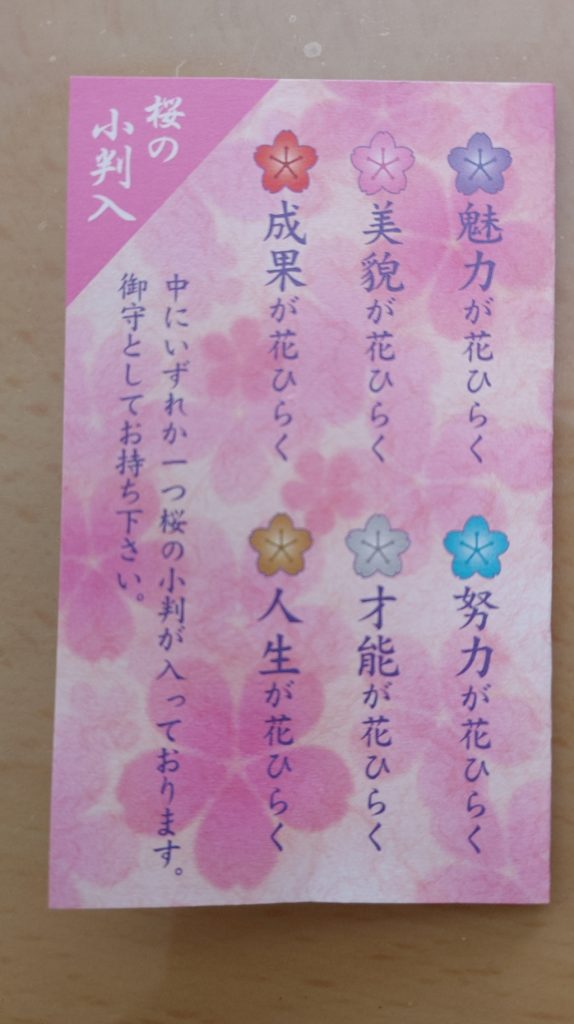 桜の
小判入
魅力が花ひらく
美貌が花ひらく
成果が花ひらく
努力が花ひらく
才能が花ひらく
人生が花ひらく
中にいずれか一つ桜の小判が入っております。
御守としてお持ち下さい。